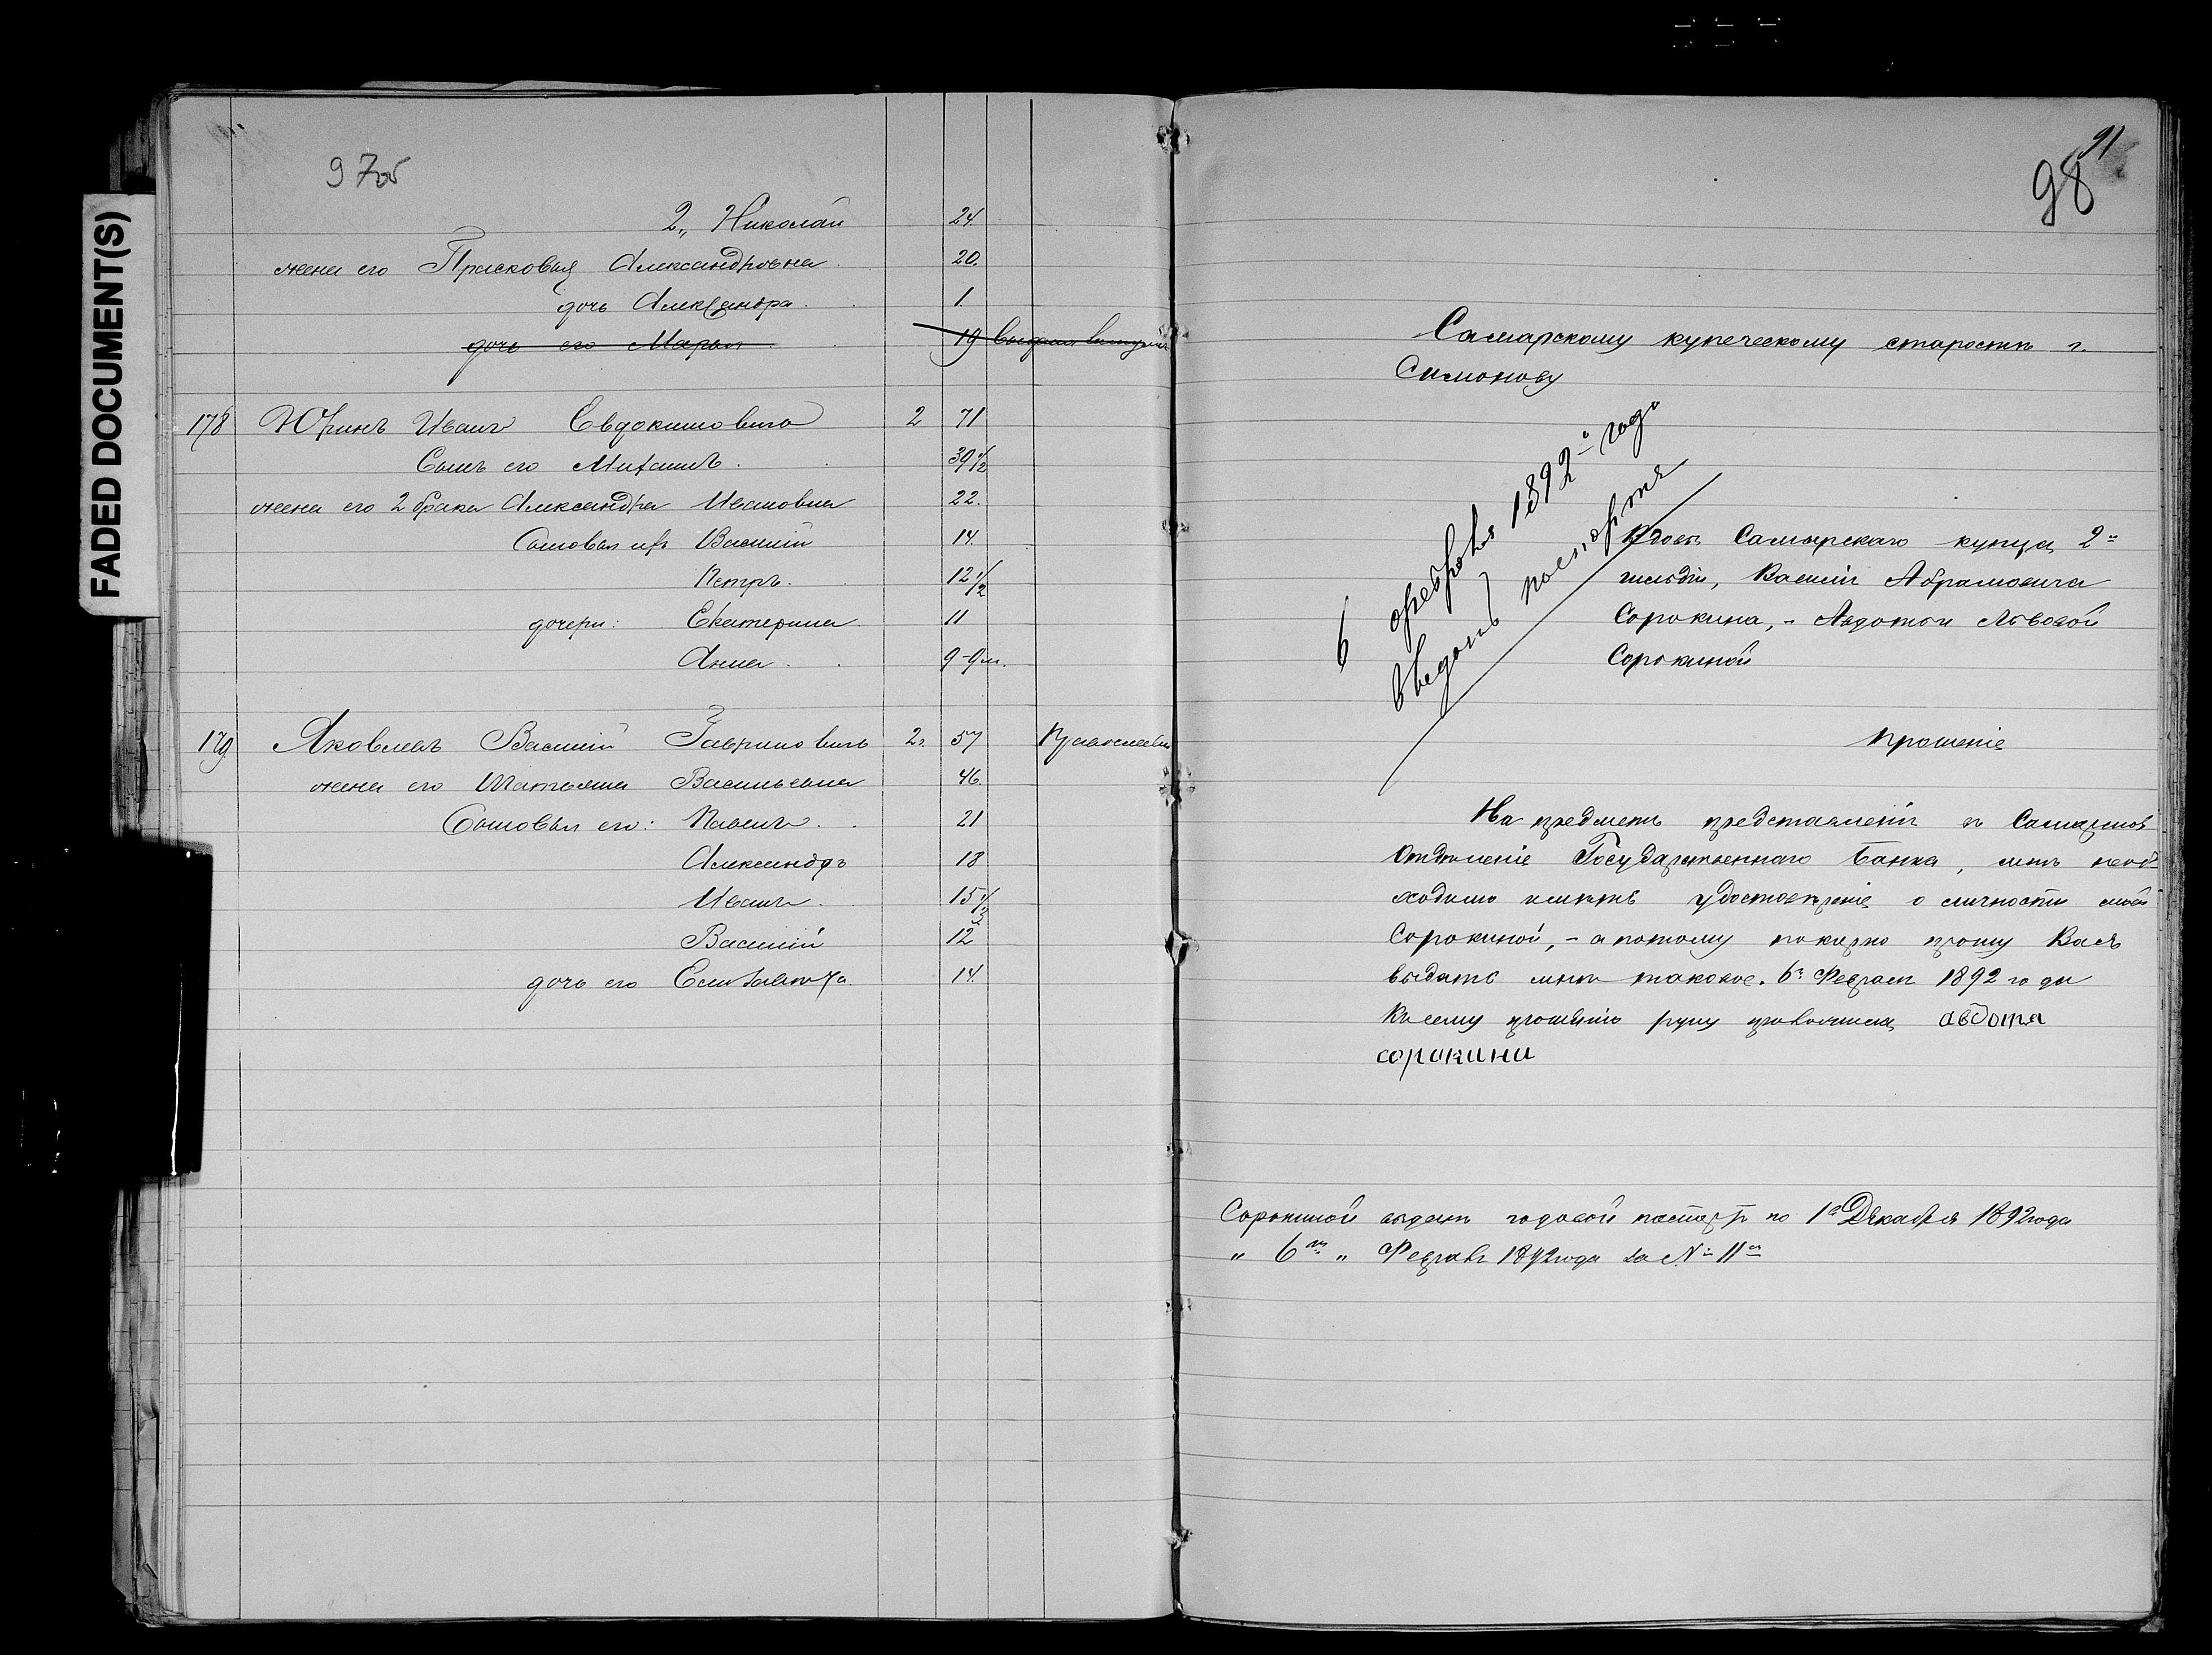 FADED DOCUMENT(S)
97об
2,, Николай 24.
жена его Прасковья Александровна 20.
дочь Александра 1.
дочь его Марья 19
178 Юринъ Иванъ Евдокимовичъ 2 71
Сынъ его Михаилъ 39 1/2
жена его 2 брака Александра Ивановна 22.
Сыновья ихъ Василій 14.
Петръ. 12 1/2
дочери: Екатерина 11
Анна 9-9м.
179 Яковлевъ Василій Гавриловичъ 2. 57 Православн
жена его Татьяна Васильевна 46.
Сыновья его: Павелъ 21
Александръ 18
Иванъ 15 1/3
Василій 12
дочь его Елизавета 14.
91
98
Самарскому купеческому старостѣ г.
Симонову
6 февраля 1892 года
паспортъ
Вдовы Самарскаго купца 2й
гильдіи, Василія Абрамовича
Сорокина, - Авдотьи Львовой
Сорокиной
Прошеніе
На предметъ представленія въ Самарское
Отдѣленіе Государственнаго Банка, мнѣ необ-
ходимо имѣть удостовѣреніе о личности моей
Сорокиной, - а потому покорно прошу Васъ
выдать мнѣ таковое. 6го Февраля 1892 года
Къ сему прошенію руку приложила авдотя
сорокина
Сорокиной выданъ годовой паспортъ по 1е Декабря 1892 года
" 6го " Февраля 1892 года за № 11м